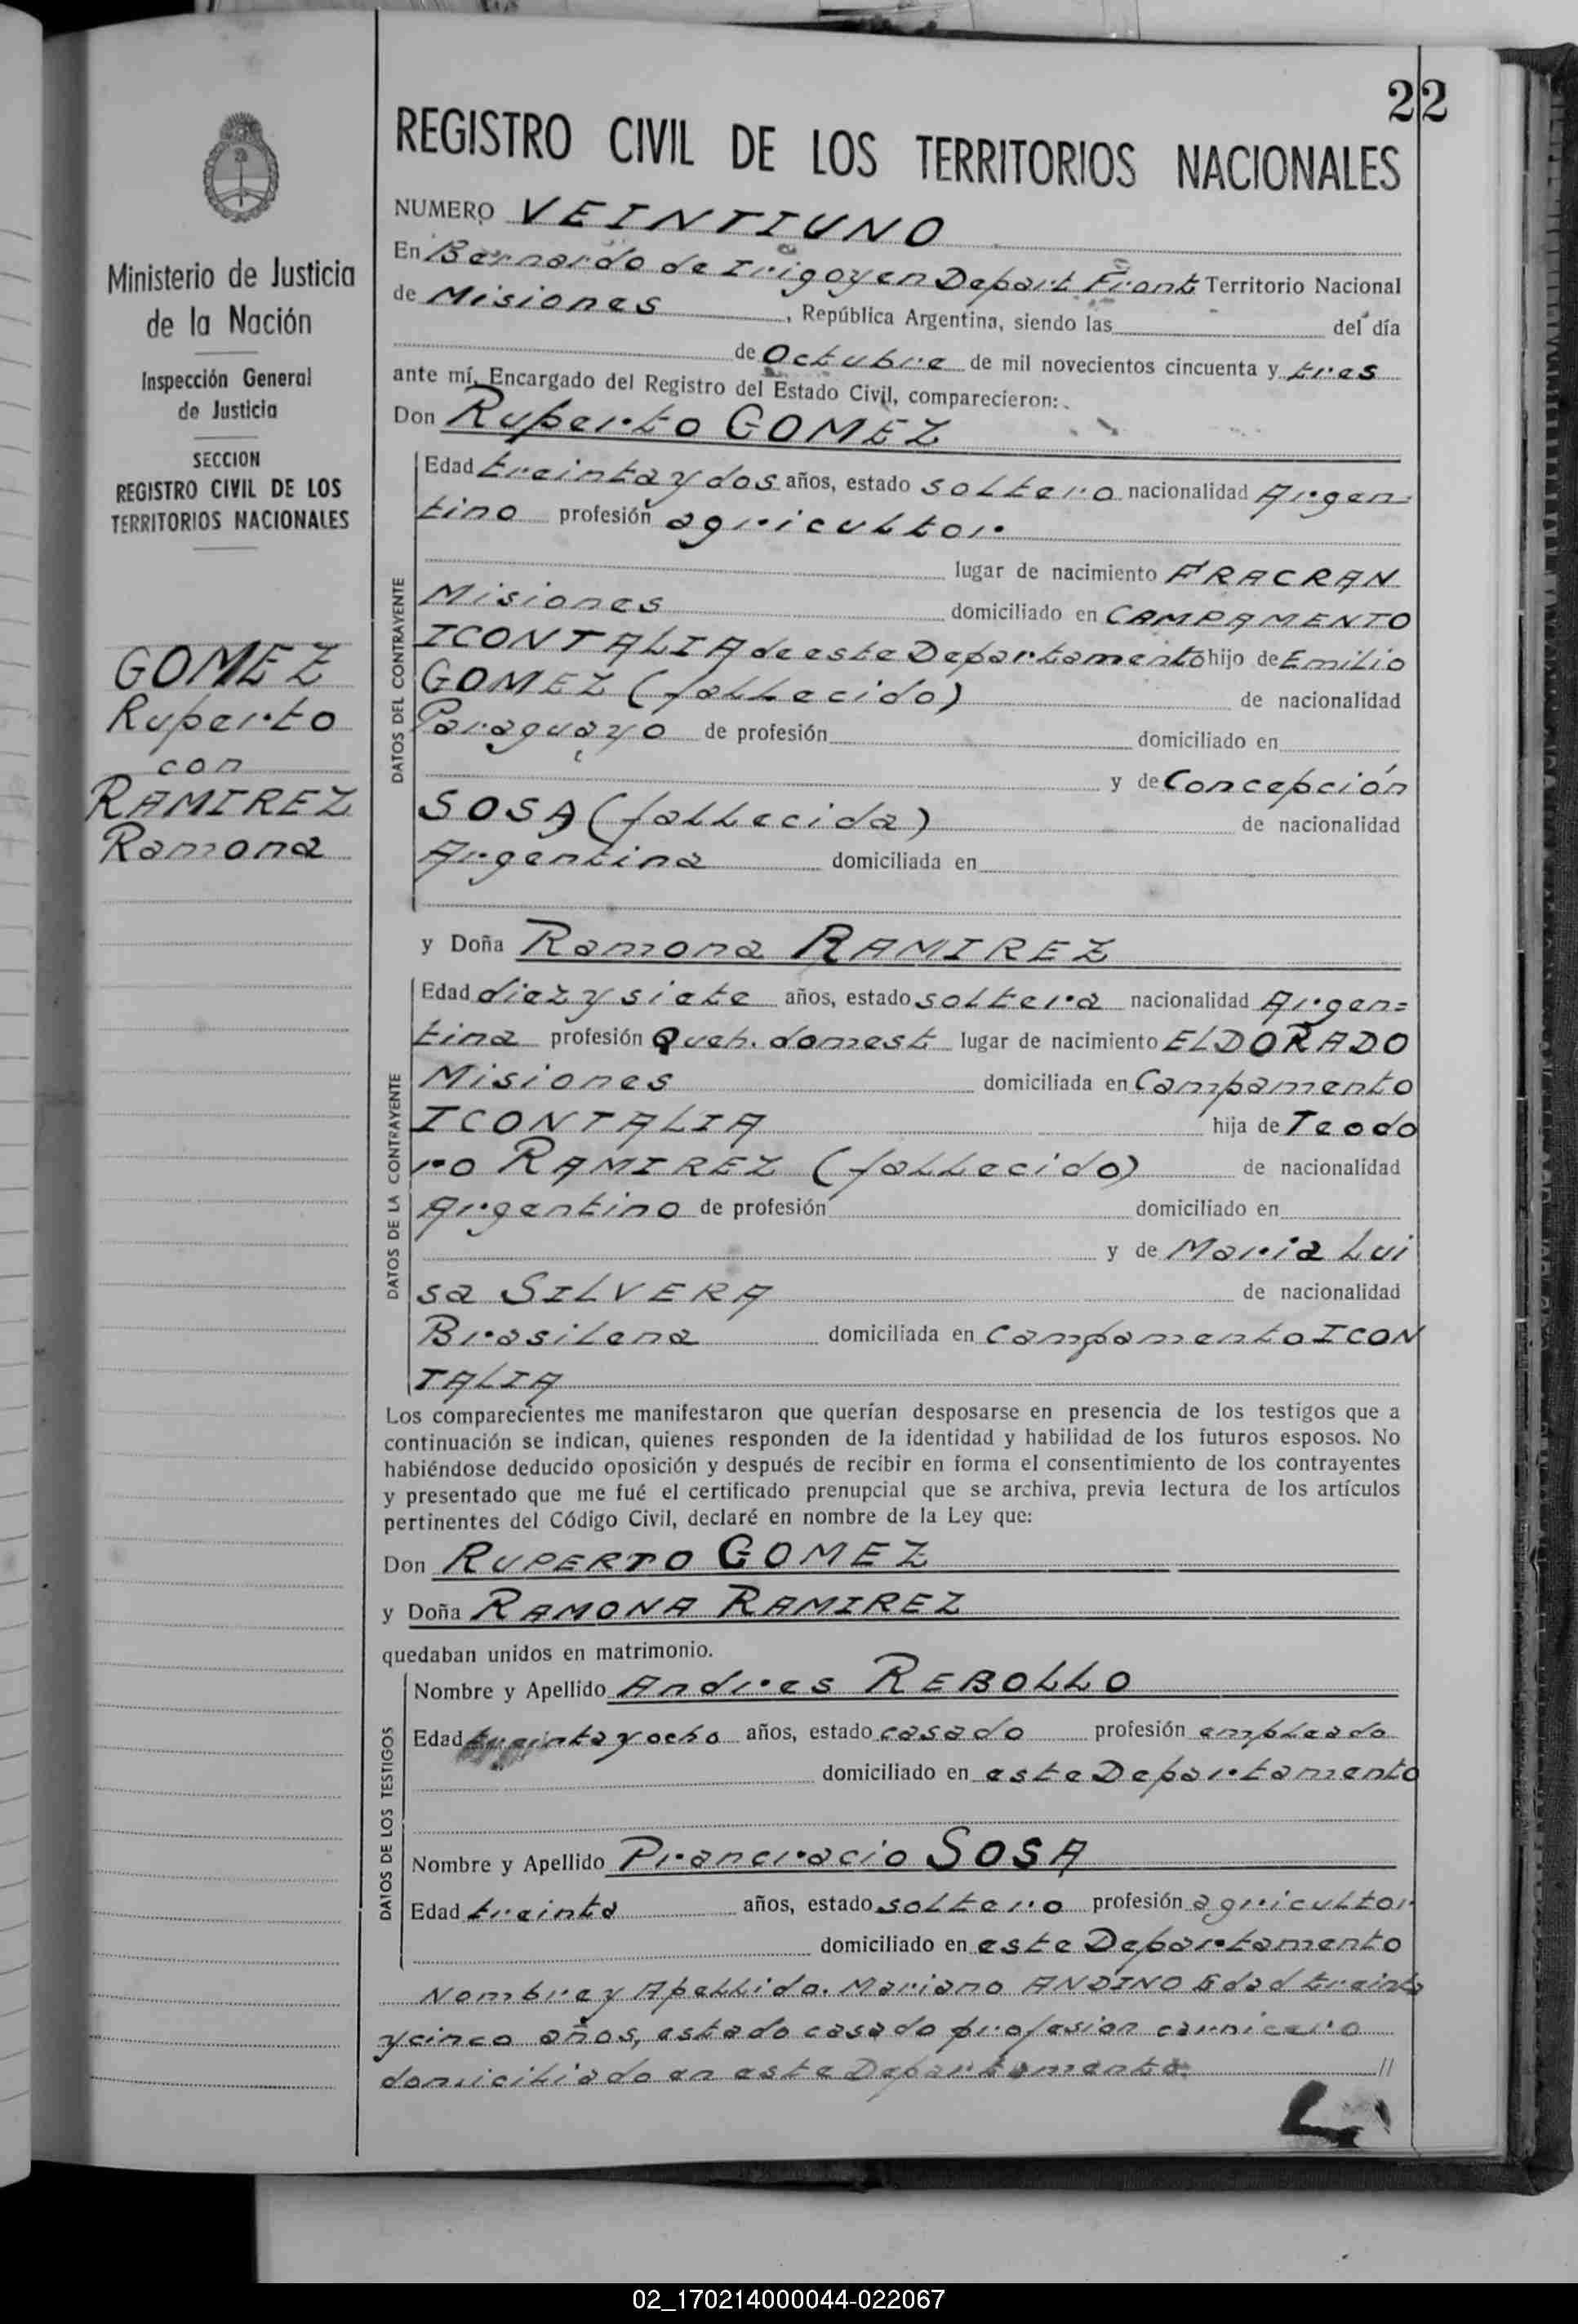 22
REGISTRO CIVIL DE LOS TERRITORIOS NACIONALES
Ministerio de Justicia
de la Nación
Inspección General
de Justicia
SECCION
REGISTRO CIVIL DE LOS
TERRITORIOS NACIONALES
GOMEZ
Ruperto
con
RAMIREZ
Ramona
NUMERO VEINTIUNO
En Bernardo de Irigoyen Depart Front Territorio Nacional
de Misiones, República Argentina, siendo las del día
de Octubre de mil novecientos cincuenta y tres
ante mí, Encargado del Registro del Estado Civil, comparecieron:
Don Ruperto GOMEZ
DATOS DEL CONTRAYENTE
Edad treinta y dos años, estado soltero nacionalidad Argen=
tino profesión agricultor
lugar de nacimiento FRACRAN
Misiones domiciliado en CAMPAMENTO
ICONTALIA de este Departamento hijo de Emilio
GOMEZ (fallecido) de nacionalidad
Paraguayo de profesión domiciliado en
y de Concepción
SOSA (fallecida) de nacionalidad
Argentina domiciliada en
y Doña Ramona RAMIREZ
DATOS DE LA CONTRAYENTE
Edad diez y siete años, estado soltera nacionalidad Argen=
tina profesión Queh. domest lugar de nacimiento ELDORADO
Misiones domiciliada en Campamento
ICONTALIA hija de Teodo
ro RAMIREZ (fallecido) de nacionalidad
Argentino de profesión domiciliado en
y de Maria Lui
sa SILVERA de nacionalidad
Brasilena domiciliada en Campamento ICON
TALIA
Los comparecientes me manifestaron que querían desposarse en presencia de los testigos que a
continuación se indican, quienes responden de la identidad y habilidad de los futuros esposos. No
habiéndose deducido oposición y después de recibir en forma el consentimiento de los contrayentes
y presentado que me fué el certificado prenupcial que se archiva, previa lectura de los artículos
pertinentes del Código Civil, declaré en nombre de la Ley que:
Don RUPERTO GOMEZ
y Doña RAMONA RAMIREZ
quedaban unidos en matrimonio.
DATOS DE LOS TESTIGOS
Nombre y Apellido Andres REBOLLO
Edad treinta y ocho años, estado casado profesión empleado
domiciliado en este Departamento
Nombre y Apellido Prancracio SOSA
Edad treinta años, estado soltero profesión agricultor
domiciliado en este Departamento
Nombre y Apellido. Mariano ANDINO Edad treinta
y cinco años, estado casado profesion carnicero
domiciliado en este Departamento. //
02_170214000044-022067